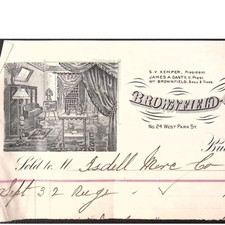 S. V. KEMPER, President
JAMES A. CANTY, V. Prest.
WM. BROWNFIELD, Secy. & Treas.
BROWNFIELD-
No. 24 WEST PARK ST.
Sold to M Isdell Merc Co
Sept 3 2 Rugs